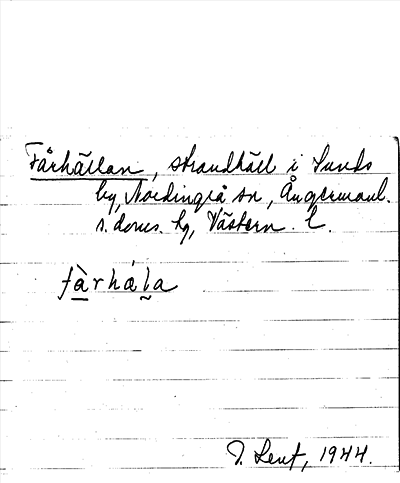 Fårhällan, strandhäll i Sunds
by, Nordingrå sn, Ångermanl.
s. doms. hg, Västern. l.
fàrhála
1944.